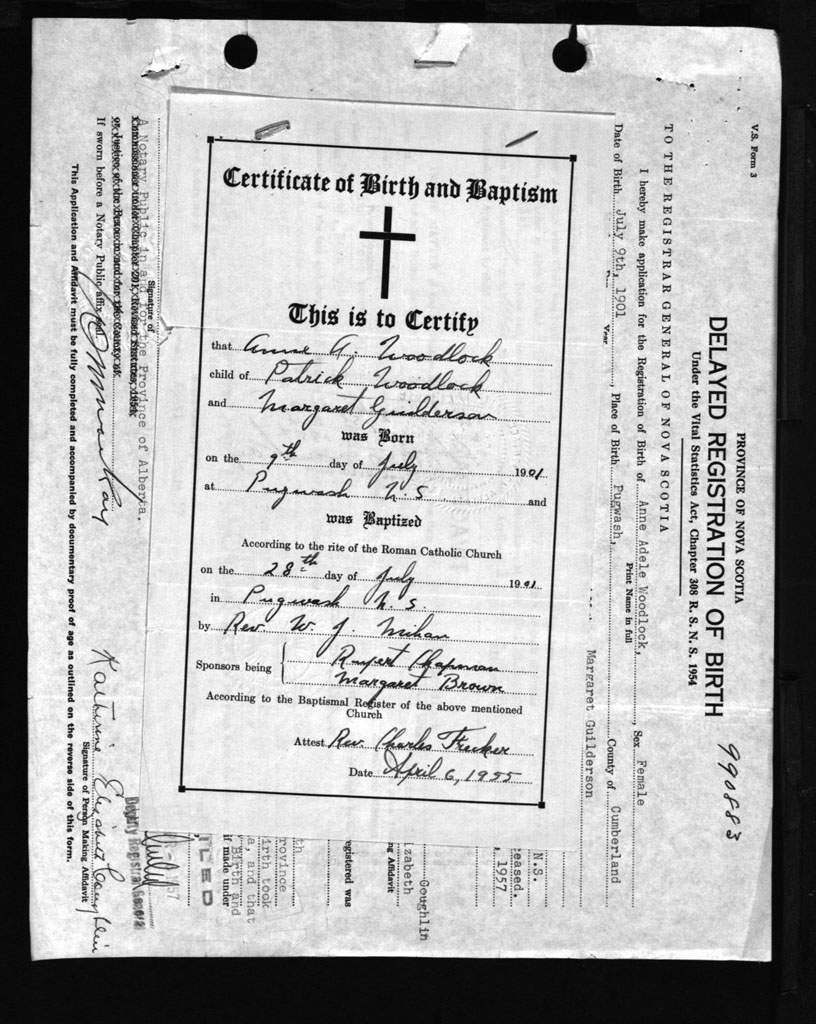 Certificate of Birth and Baptism
This is to Certify
that Anne A. Woodlock
child of Patrick Woodlock
and Margaret Guilderson
was Born
on the 9th day of July 1901
at Pugwash N S and
was Baptized
According to the rite of the Roman Catholic Church
on the 28th day of July 1901
in Pugwash N. S.
by Rev W. J. Mihan
Sponsors being Rupert Chapman
Margaret Brown
According to the Baptismal Register of the above mentioned
Church
Attest Rev. Charles
Date April 6, 1955
V.S. Form 3
PROVINCE OF NOVA SCOTIA
DELAYED REGISTRATION OF BIRTH
990883
Under the Vital Statistics Act, Chapter 308 R. S. N. S. 1954
TO THE REGISTRAR GENERAL OF NOVA SCOTIA
I hereby make application for the Registration of Birth of Anne Adele Woodlock, Sex Female
Print Name in full
Date of Birth July 9th, 1901, Place of Birth Pugwash, County of Cumberland
Year
Margaret Guilderson
N.S.
eased.
, 1957
Coughlin
zabeth
ng Affidavit
egistered was
th
rovince
irth took
a, and that
Birth and
if made under
ILED
57
July
Deputy Registrar General
A Notary Public in and for the Province of Alberta.
Signature of
If sworn before a Notary Public affix seal
Katherine Elizabeth Coughlin
Signature of Person Making Affidavit
This Application and Affidavit must be fully completed and accompanied by documentary proof of age as outlined on the reverse side of this form.